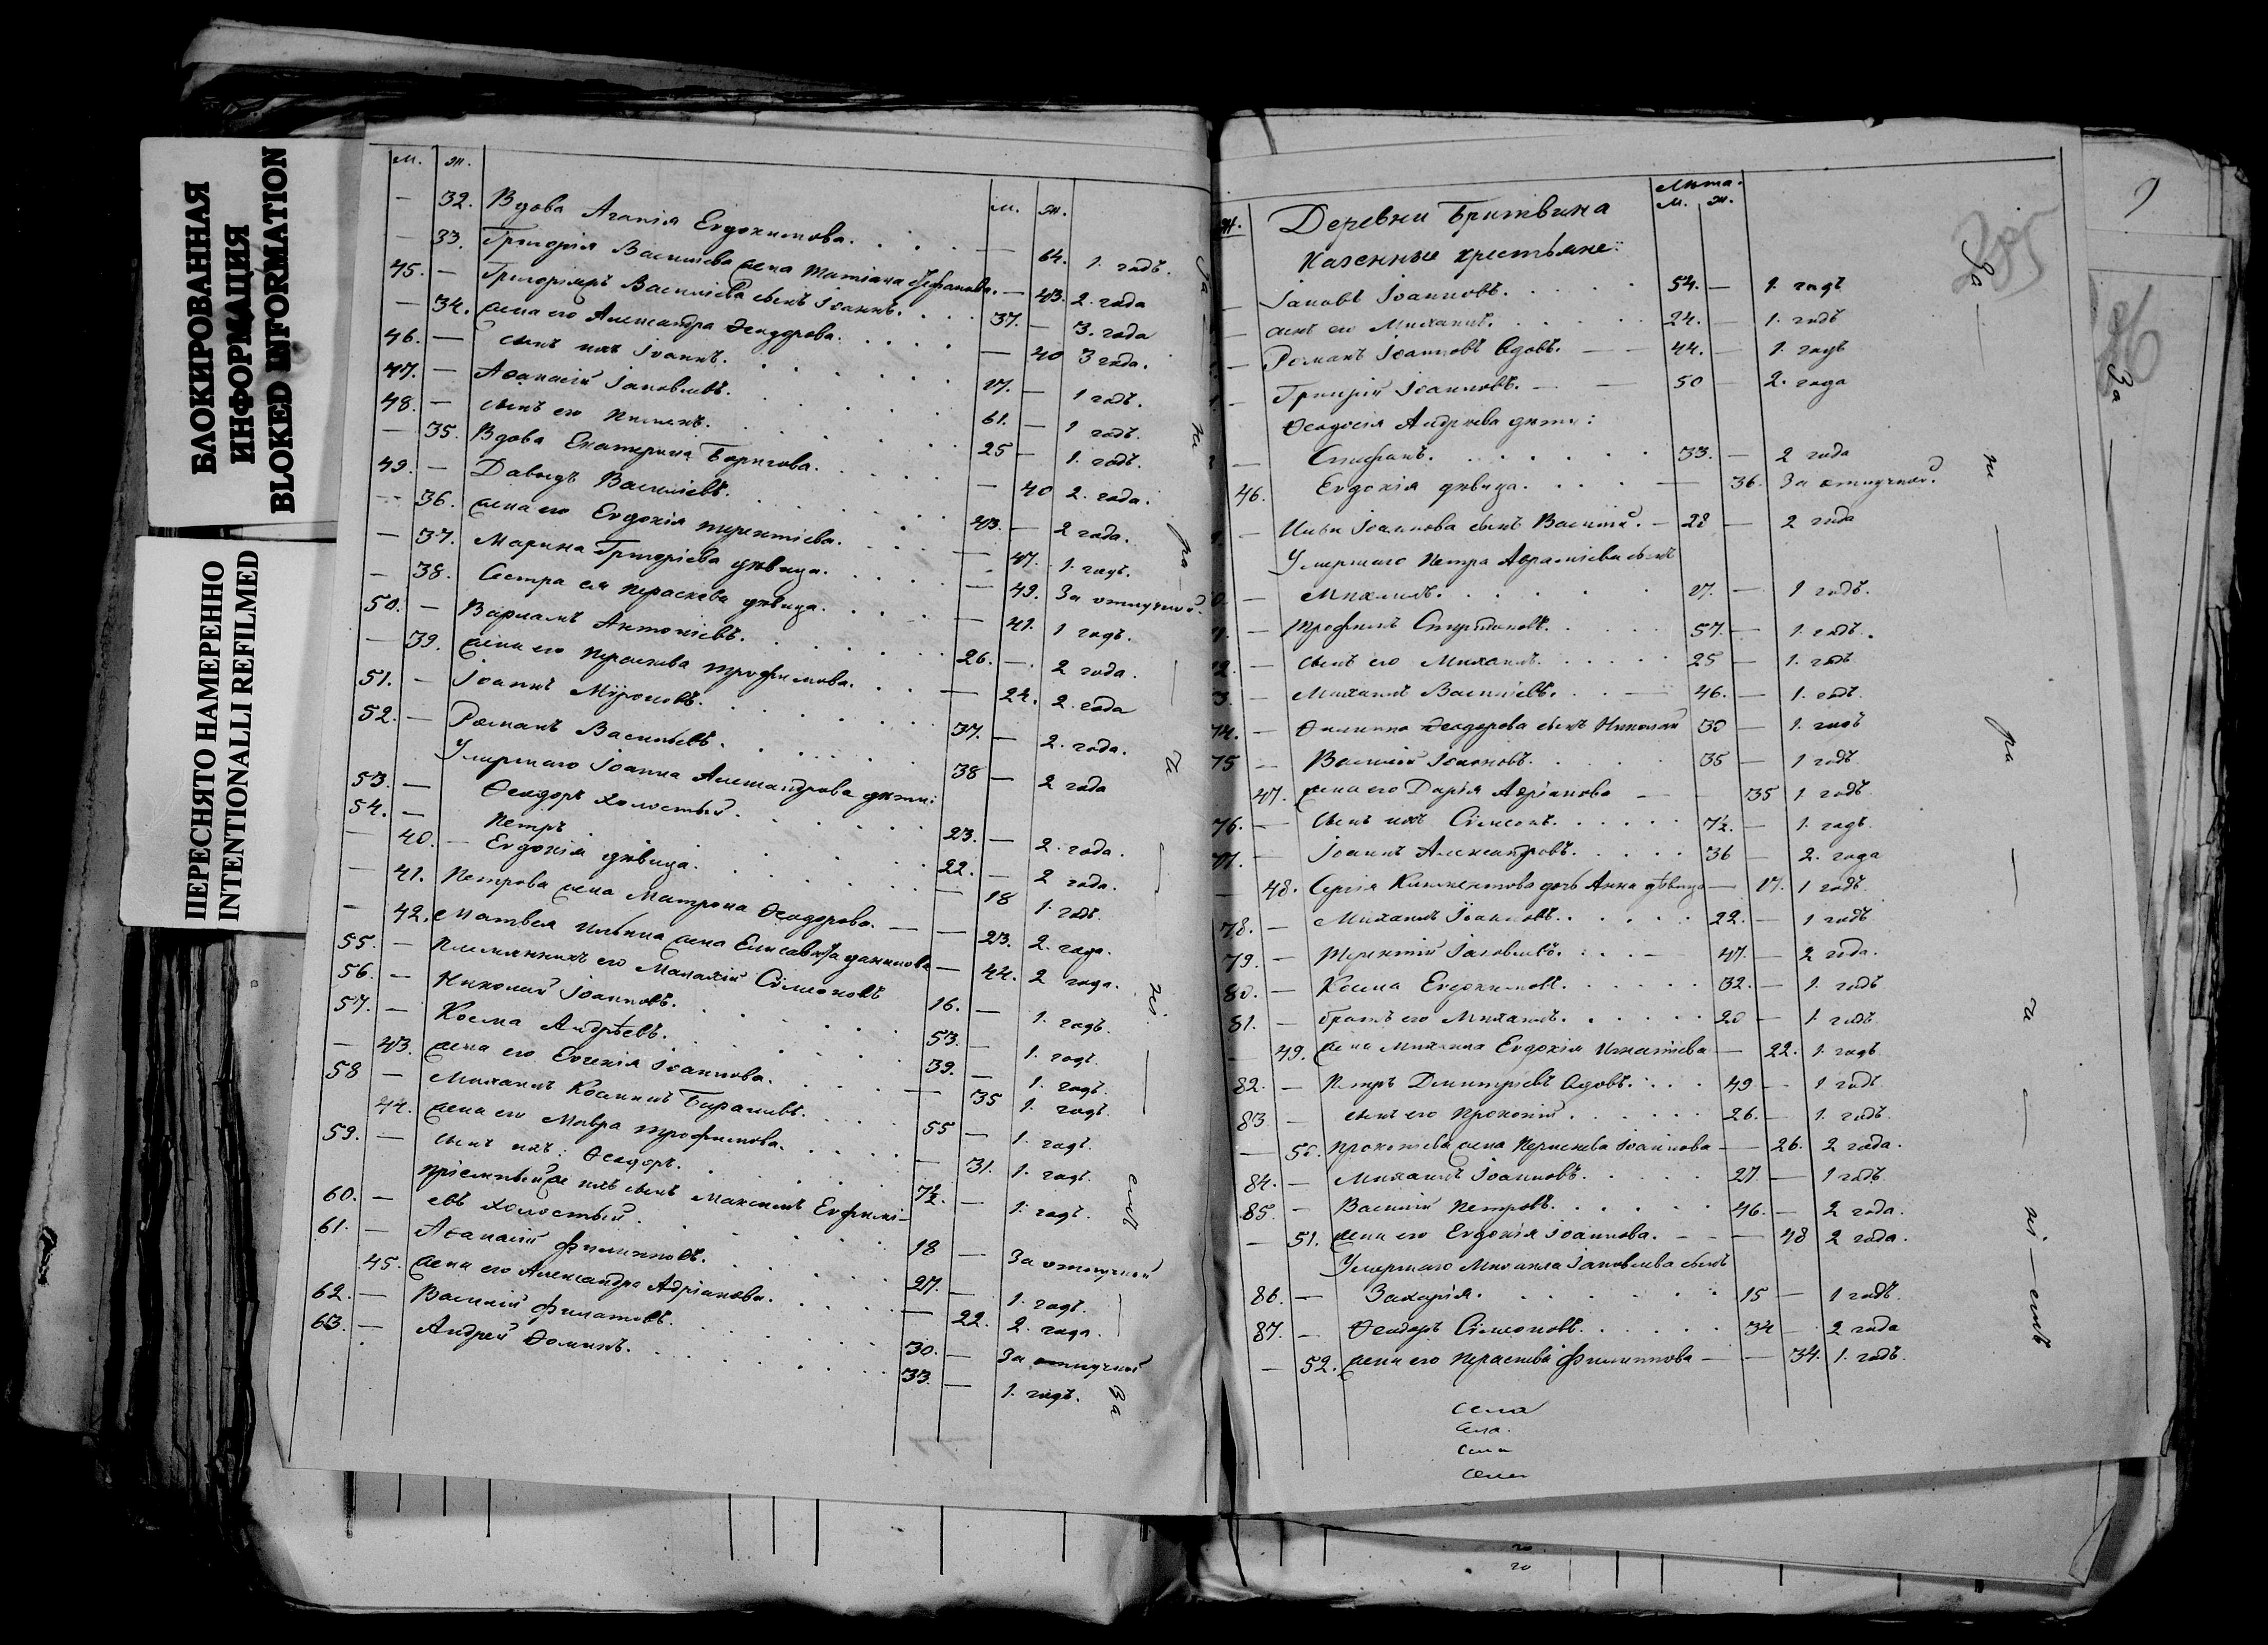 БЛОКИРОВАННАЯ
ИНФОРМАЦИЯ
BLOKED INFORMATION
ПЕРЕСНЯТО НАМЕРЕННО
INTENTIONALLI REFILMED
м. ж. м. ж.
— 32. Вдова Агапія Евдокимова. — 64. 1. годъ.
— 33. Григорія Василиева жена Татіана Стефанова. — 43. 2. года
45. — Василіева сынъ Іоаннъ. 37. — 3. года
— 34. жена его Александра Ѳеодорова. — 40 3 года.
46. — сынъ ихъ Іоаннъ. 17. — 1 годъ.
47. — Аѳанасій Іаковлевъ. 61. — 1 годъ.
48. — сынъ его Пименъ. 25 — 1. годъ.
— 35. Вдова Екатерина Борисова. — 40 2. года.
49. — Давыдъ Василіевъ. 43. — 2 года.
— 36. жена его Евдокія Терентіева. — 47. 1. годъ.
— 37. Марина Григоріева дѣвица. — 49. За отлучкой.
— 38. Сестра ея Параскева дѣвица. — 41. 1 годъ.
50. — Варлаамъ Антоніевъ. 26. — 2 года.
— 39. жена его Параскева Трофимова. — 24. 2. года
51. — Іоаннъ Мѵроновъ. 37. — 2. года.
52. — Романъ Васильевъ. 38 — 2 года
Умершаго Іоанна Александрова дѣти:
53. — Ѳеодоръ холостый. 23. — 2. года.
54. — Петръ 22. — 2 года.
— 40. — Евдокія дѣвица. — 18 1. годъ.
— 41. Петрова жена Матрона Ѳеодорова. — 23. 2. года.
— 42. Матвея Ильина жена Елисавета Данилова — 44. 2 года.
55. — Племянникъ его Малахій Сѵмеоновъ 16. — 1. годъ.
56. — Николай Іоанновъ. 53. — 1. годъ.
57. — Косма Андрѣевъ. 39. — 1. годъ.
— 43. жена его Евгенія Іоаннова. — 35 1. годъ.
58 — Михаилъ Косминъ 55 — 1. годъ.
44. жена его Мавра Трофимова. — 31. 1. годъ.
59. — сынъ ихъ: Ѳеодоръ. 7½. — 1. годъ.
пріемный же ихъ сынъ Максимъ Евфимі-
60. — евъ холостый. 18 — За отлучкой
61. — Аѳанасій Филипповъ. 27. — 1. годъ.
45. жена его Александра Адріанова. — 22. 2. года.
62. — Василій Филатовъ. 30. — За отлучкой
63. — Андрей Ѳоминъ. 33. — 1. годъ.
За
ж. Деревни Бритвина Лѣта. м. ж.
Казенные крестьяне:
— Іаковъ Іоанновъ. 54. — 1. годъ
— сынъ его Михаилъ. 24. — 1. годъ
— Романъ Іоанновъ вдовъ. 44. — 1. годъ
— Григорій Іоанновъ. 50 — 2. года
Ѳеодосія Андреева дѣти:
— Стефанъ. 33. — 2 года
46. Евдокія дѣвица. — 36. За отлучкой.
— Ильи Іоаннова сынъ Василій. — 28 — 2 года
Умершаго Петра сынъ
— Михаилъ. 27. — 1 годъ.
— Трофимъ 57. — 1. годъ.
— сынъ его Михаилъ. 25 — 1. годъ
— Михаилъ Василіевъ. 46. — 1. годъ.
74. — Филиппа Ѳеодорова сынъ Николай 30 — 1. годъ
75 — Василій 35 — 1 годъ
47. жена его Дарія Адріанова — 35 1 годъ
76. — сынъ ихъ Сѵмеонъ. 7½. — 1. годъ.
77. — Іоаннъ Александровъ. 36 — 2. года
— 48. Сергія Климентова дочь Анна дѣвица — 17. 1 годъ.
78. — Михаилъ Іоанновъ. 22. — 1 годъ
79. — Терентій Іаковлевъ. 47. — 2 года.
80. — Косма Евдокимовъ. 32. — 1. годъ
81. — братъ его Михаилъ. 20 — 1. годъ.
— 49. жена Михаила Евдокія Игнатіева — 22. 1. годъ
82. — Петръ Димитріевъ вдовъ. 49 — 1 годъ
83 — сынъ его Прокопій 26. — 1. годъ
— 50. Прокопіева жена Параскева Іоаннова — 26. 2 года.
84. — Михаилъ Іоанновъ. 27. — 1 годъ.
85. — Василій Петровъ. 46. — 2 года.
— 51. жена его Евдокія Іоаннова. — 48 2 года.
Умершаго Михаила Іаковлева сынъ
86. — Захарія. 15 — 1 годъ.
87. — Ѳеодоръ Сѵмеоновъ. 34 — 2 года
— 52. жена его Параскева Филиппова — 34. 1. годъ.
села
села.
села
села
За